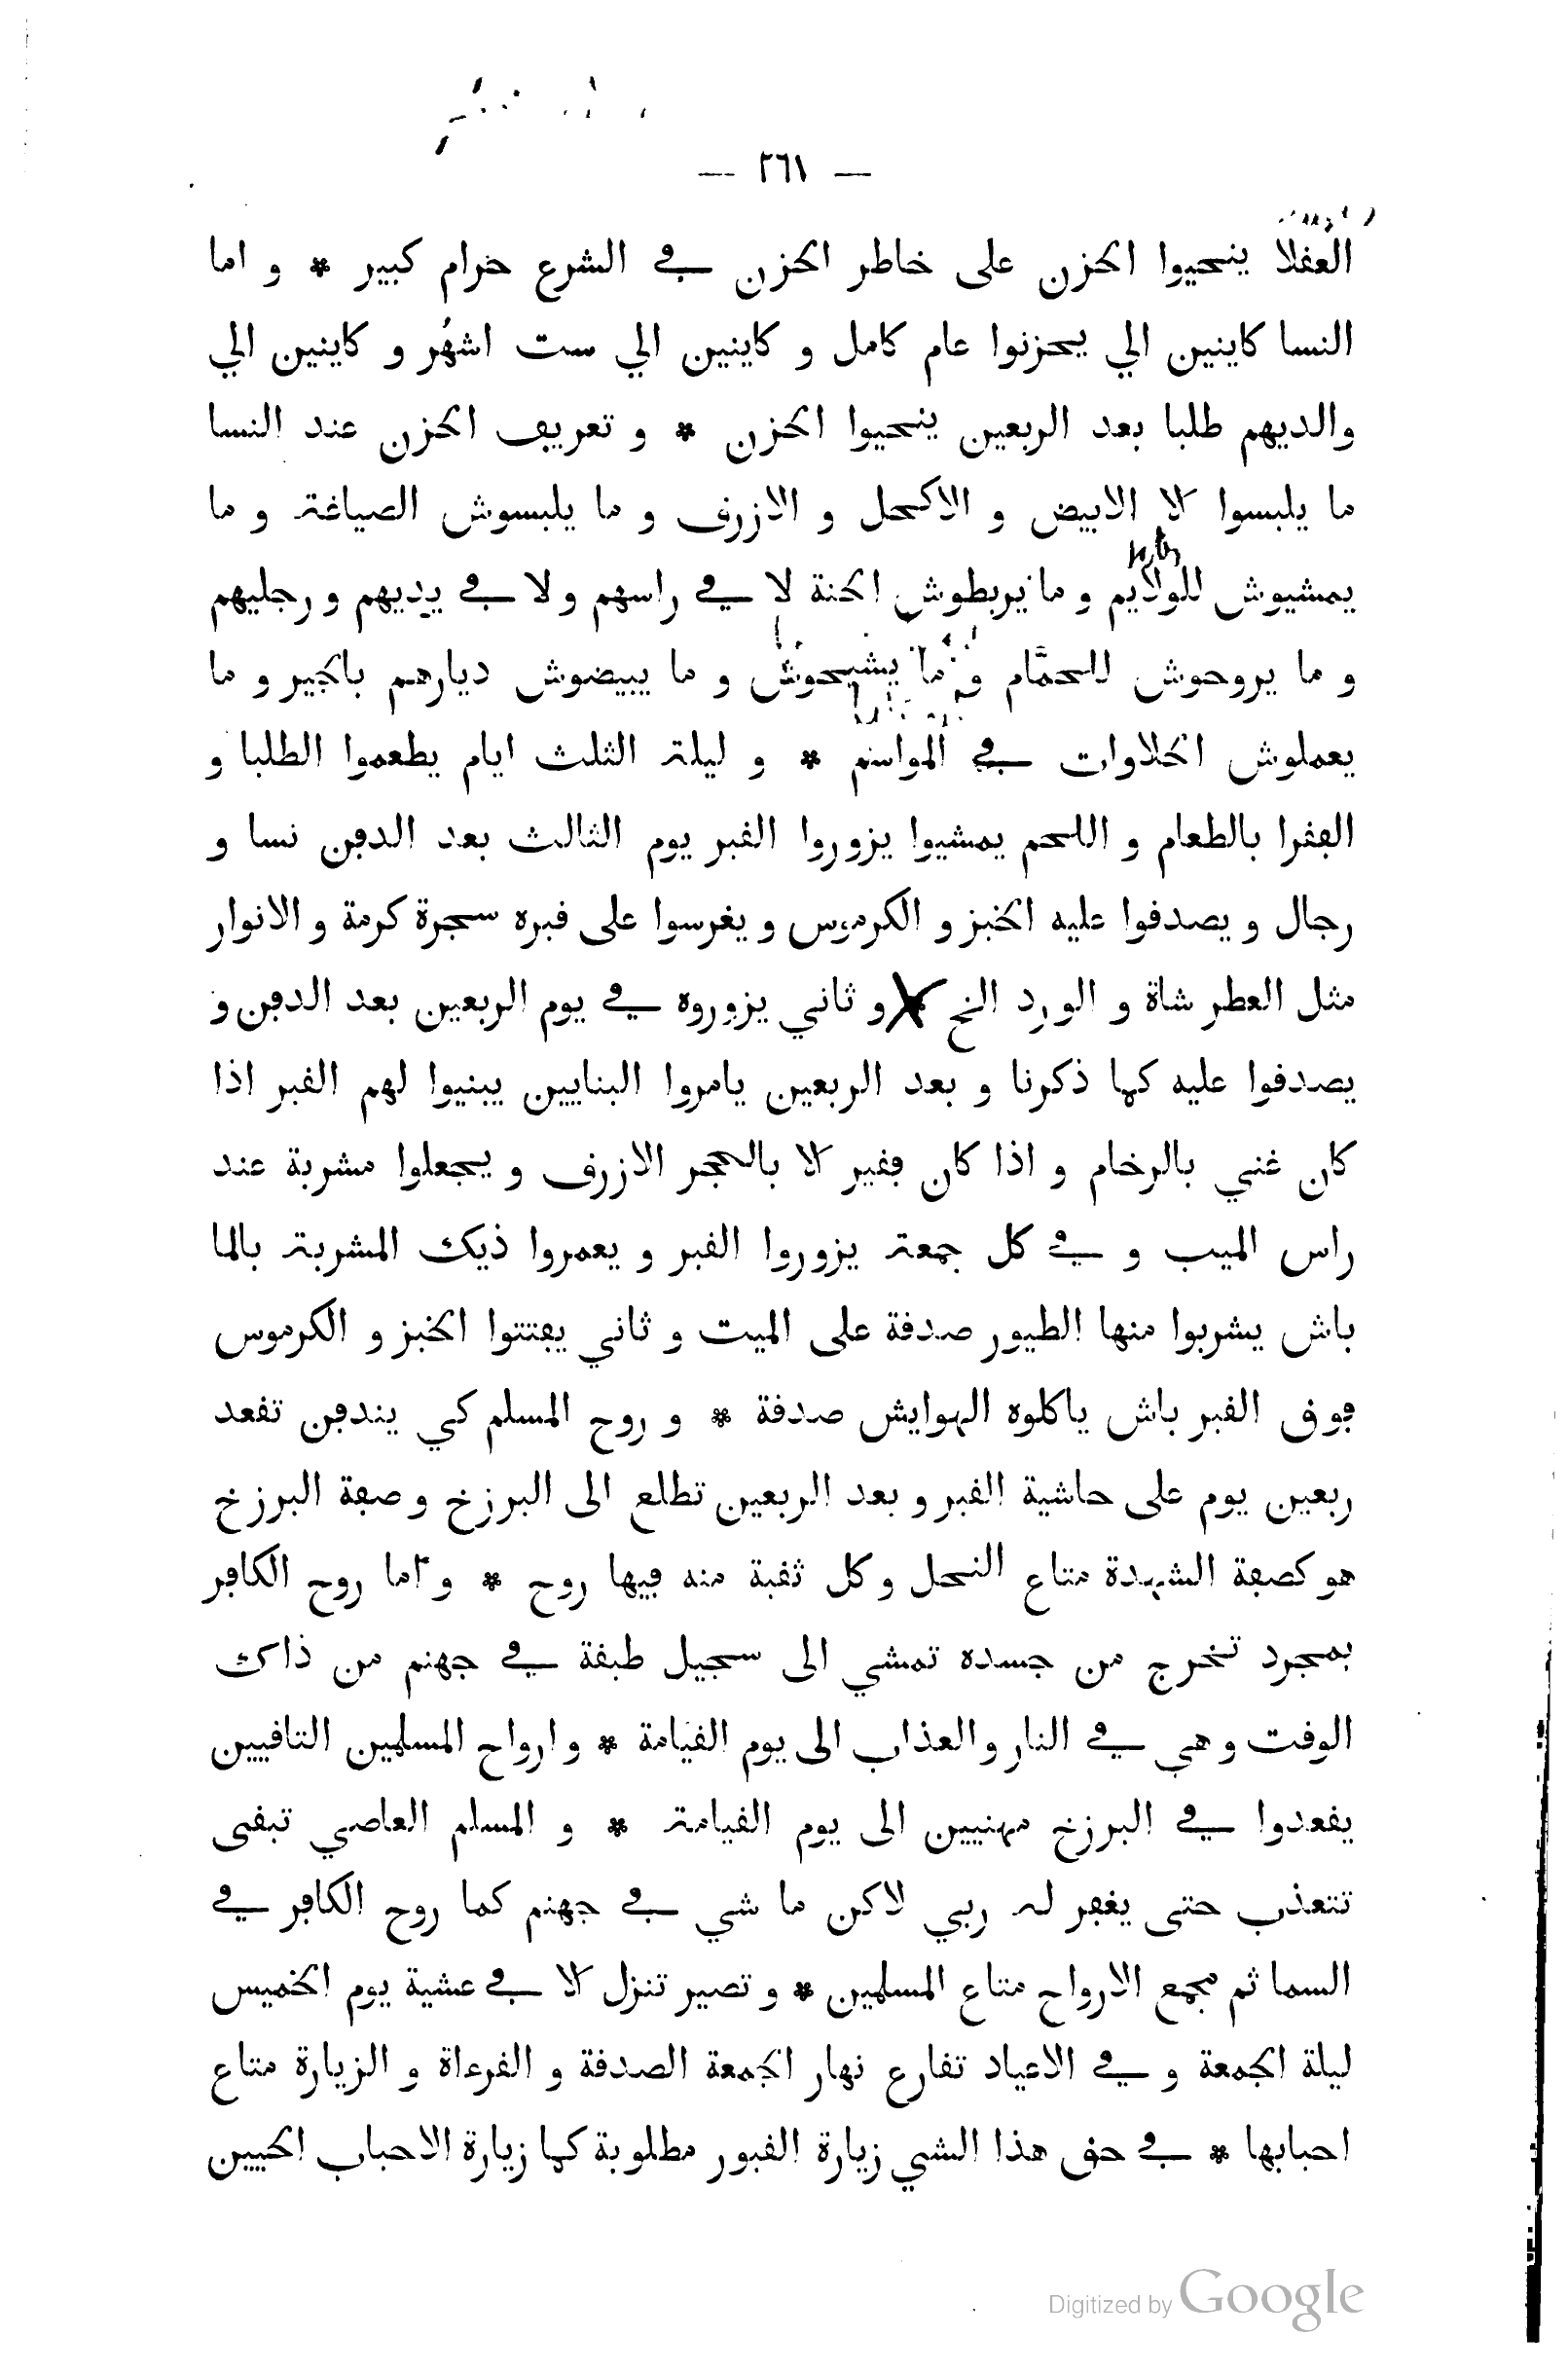 — ٢٦١ —
العقلا ينحيوا الحزن على خاطر الحزن في الشرع حرام كبير * و اما
النسا كاينين الي يحزنوا عام كامل و كاينين الي ست اشهُر و كاينين الي
والديهم طلبا بعد الربعين ينحيوا الحزن * و تعريف الحزن عند النسا
ما يلبسوا كلا الابيض و الاكحل و الازرق و ما يلبسوش الصياغة و ما
يمشيوش للولايم و ما يربطوش الحنة لا في راسهم ولا في يديهم و رجليهم
و ما يروحوش للحمَّام و ما يشيحوش و ما يبيضوش ديارهم بالجير و ما
يعملوش الحلاوات في المواسم * و ليلة الثلث ايام يطعموا الطلبا و
الفقرا بالطعام و اللحم يمشيوا يزوروا القبر يوم الثالث بعد الدفن نسا و
رجال و يصدقوا عليه الخبز و الكرموس و يغرسوا على قبره سجرة كرمة و الانوار
مثل العطر شاة و الورد الخ * و ثاني يزوروه في يوم الربعين بعد الدفن و
يصدقوا عليه كما ذكرنا و بعد الربعين يامروا البنايين يبنيوا لهم القبر اذا
كان غني بالرخام و اذا كان فقير كلا بالحجر الازرق و يجعلوا مشربة عند
راس الميب و في كل جمعة يزوروا القبر و يعمروا ذيك المشربة بالما
باش يشربوا منها الطيور صدقة على الميت و ثاني يفتتوا الخبز و الكرموس
فوق القبر باش ياكلوه الهوايش صدقة * و روح المسلم كي يندفن تقعد
ربعين يوم على حاشية القبر و بعد الربعين تطلع الى البرزخ و صفة البرزخ
هو كصفة الشهدة متاع النحل و كل ثقبة منه فيها روح * و اما روح الكافر
بمجرد تخرج من جسده تمشي الى سجيل طبقة في جهنم من ذاك
الوقت و هي في النار و العذاب الى يوم القيامة * و ارواح المسلمين التاقيين
يقعدوا في البرزخ مهنيين الى يوم القيامة * و المسلم العاصي تبقى
تتعذب حتى يغفر له ربي لاكن ما شي في جهنم كما روح الكافر في
السما ثم مجمع الارواح متاع المسلمين * و تصير تنزل كلا في عشية يوم الخميس
ليلة الجمعة و في الاعياد تقارع نهار الجمعة الصدقة و القرءاة و الزيارة متاع
احبابها * في حق هذا الشي زيارة القبور مطلوبة كما زيارة الاحباب الحيين
Digitized by Google